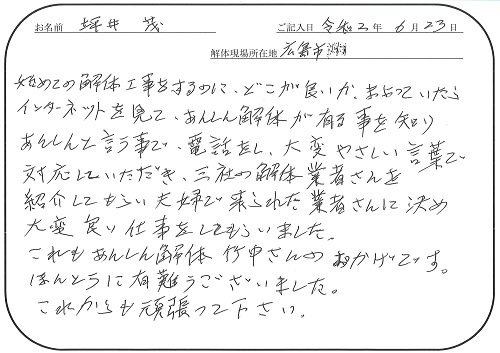 お名前 坪井 茂 ご記入日 令和2年 6月23日
解体現場所在地 広島市
始めての解体工事をするのに、どこが良いか、まよっていたら
インターネットを見て、あんしん解体が有る事を知り
あんしんと言う事で、電話をし、大変やさしい言葉で
対応していただき、三社の解体業者さんを
紹介してもらい夫婦で来られた業者さんに決め
大変良い仕事をしてもらいました。
これもあんしん解体 竹中さんのおかげです。
ほんとうに有難うございました。
これからも頑張って下さい。